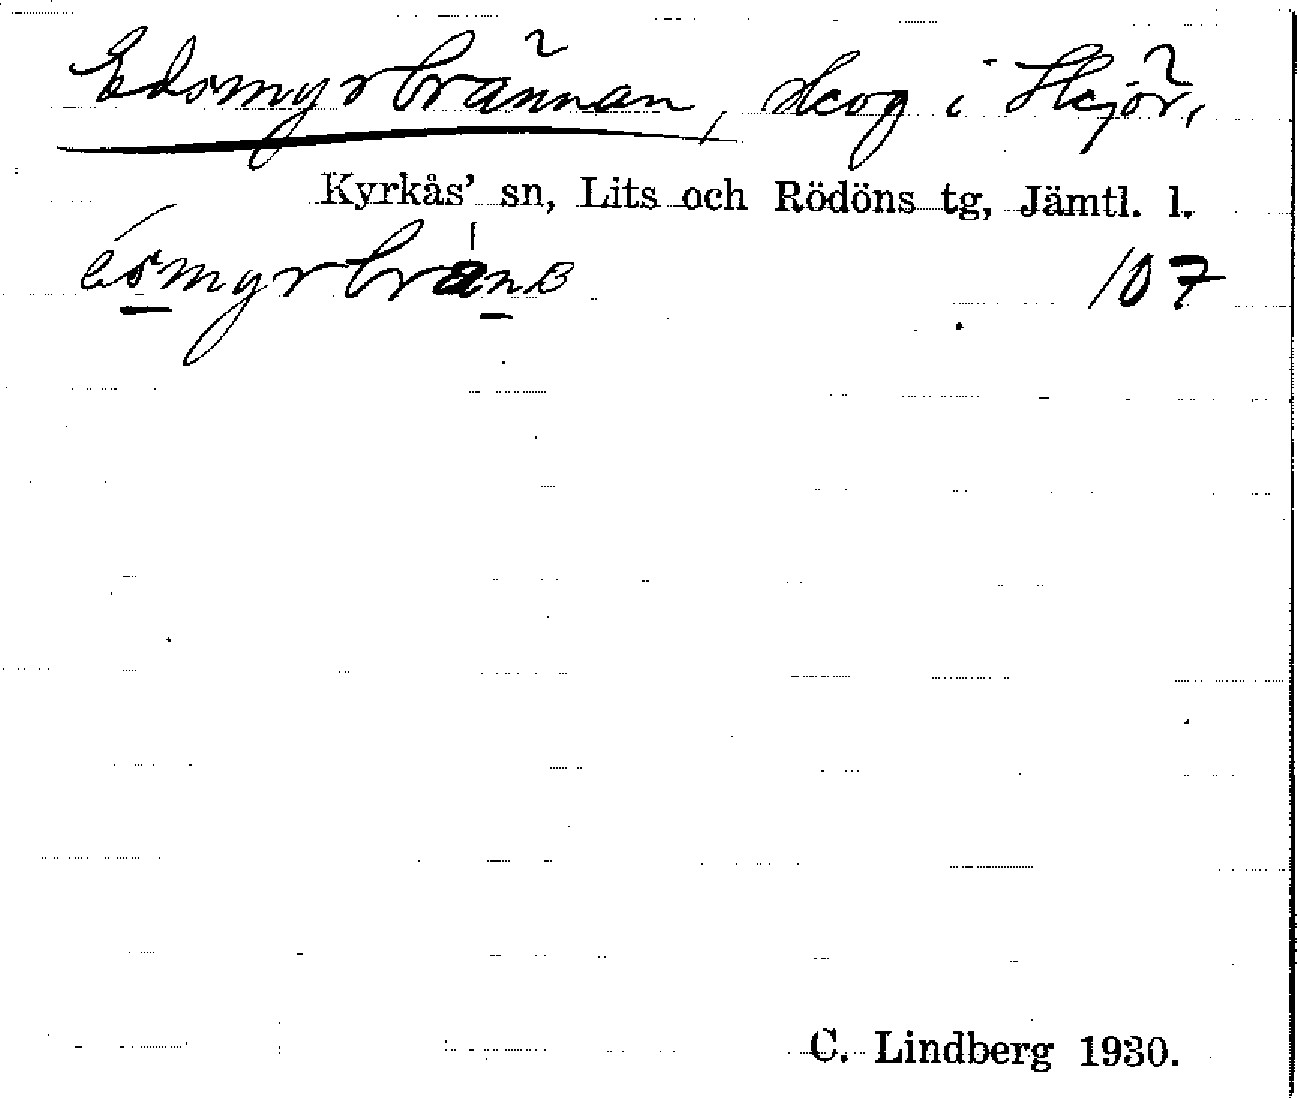 Edsmyrbrännan, skog i Skjör,
Kyrkås' sn, Lits och Rödöns tg, Jämtl. l.
107
C. Lindberg 1930.